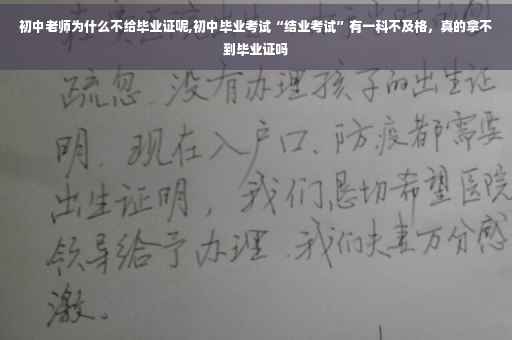 初中老师为什么不给毕业证呢,初中毕业考试“结业考试”有一科不及格，真的拿不
到毕业证吗
疏忽.没有办理孩子的出生证
明.现在入户口、防疫都需要
出生证明，我们恳切希望医院
领导给予办理.我们夫妻万分感
激.